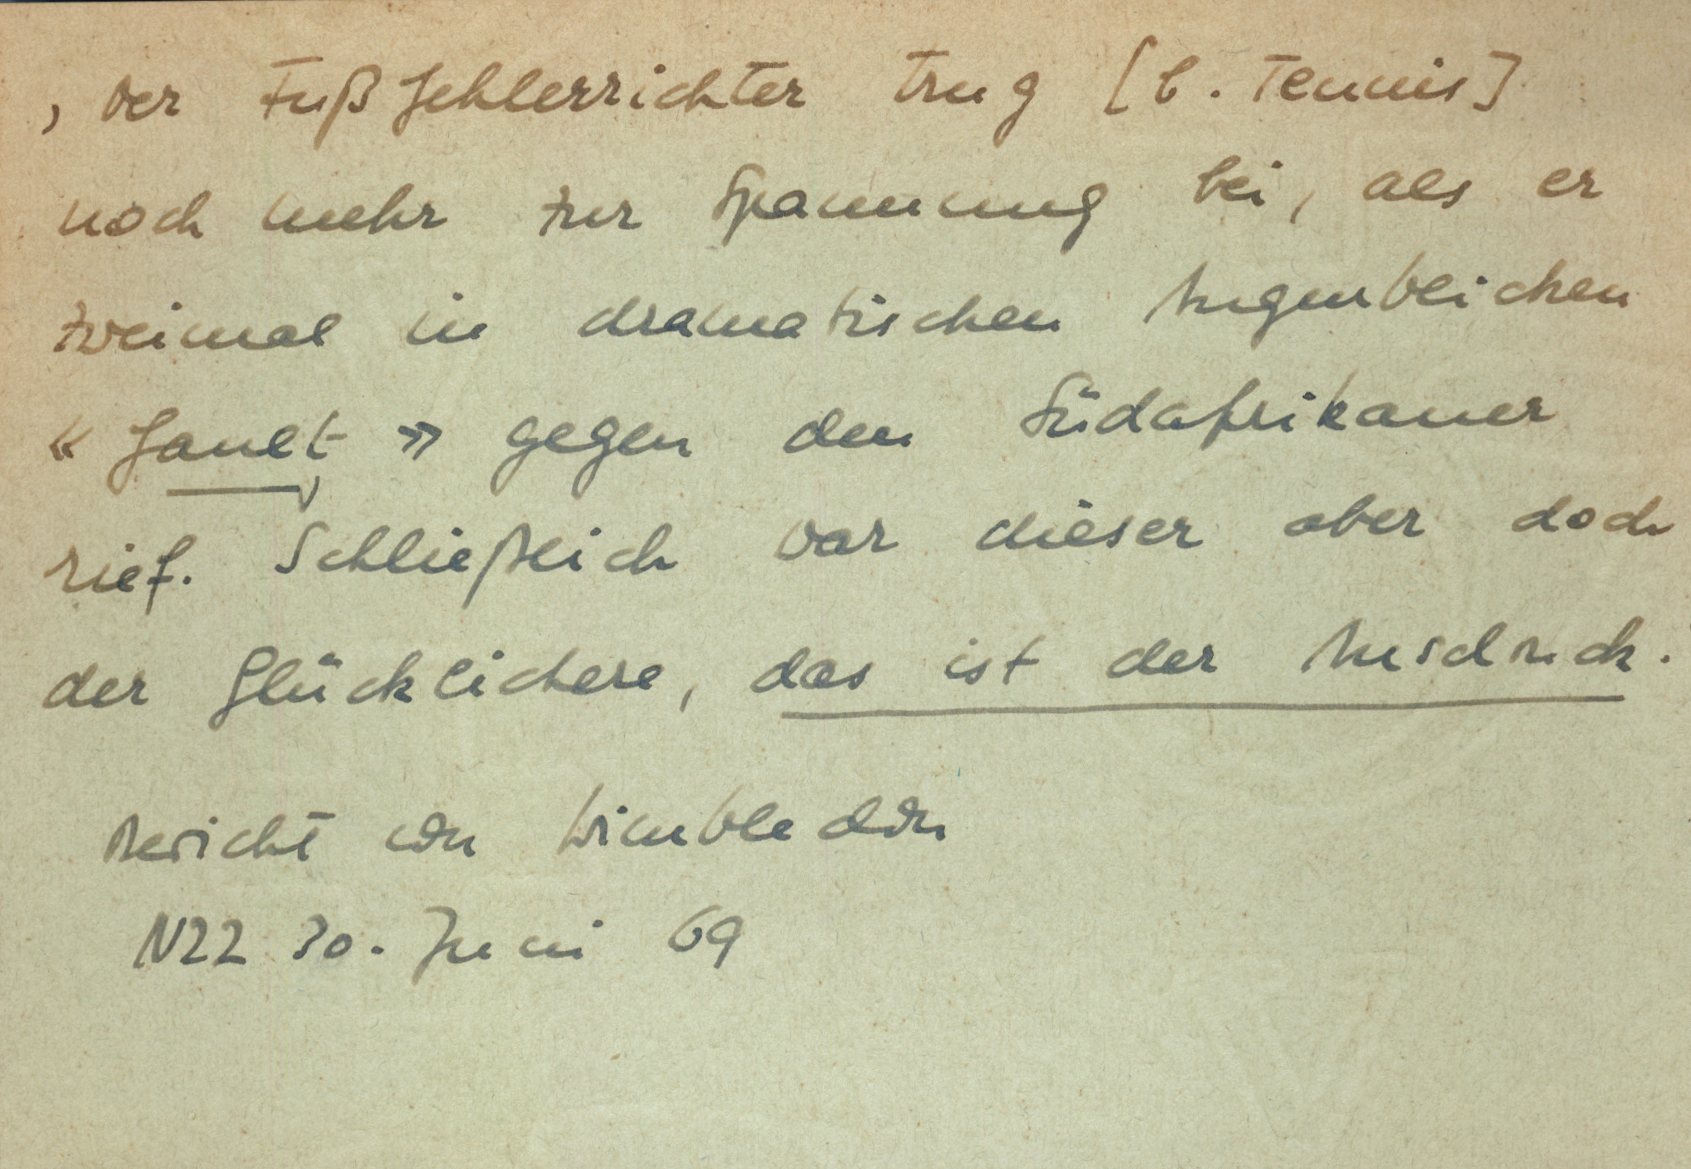 , Der Fußfehlerrichter trug [b. Tennis]
noch mehr zur Spannung bei, als er
zweimal in dramatischen Augenblicken
« Fault » gegen den Südafrikaner
rief. Schließlich war dieser aber doch
der Glücklichere, das ist der Ausdruck.
Bericht von Wimbledon
NZZ 30. Juni 69